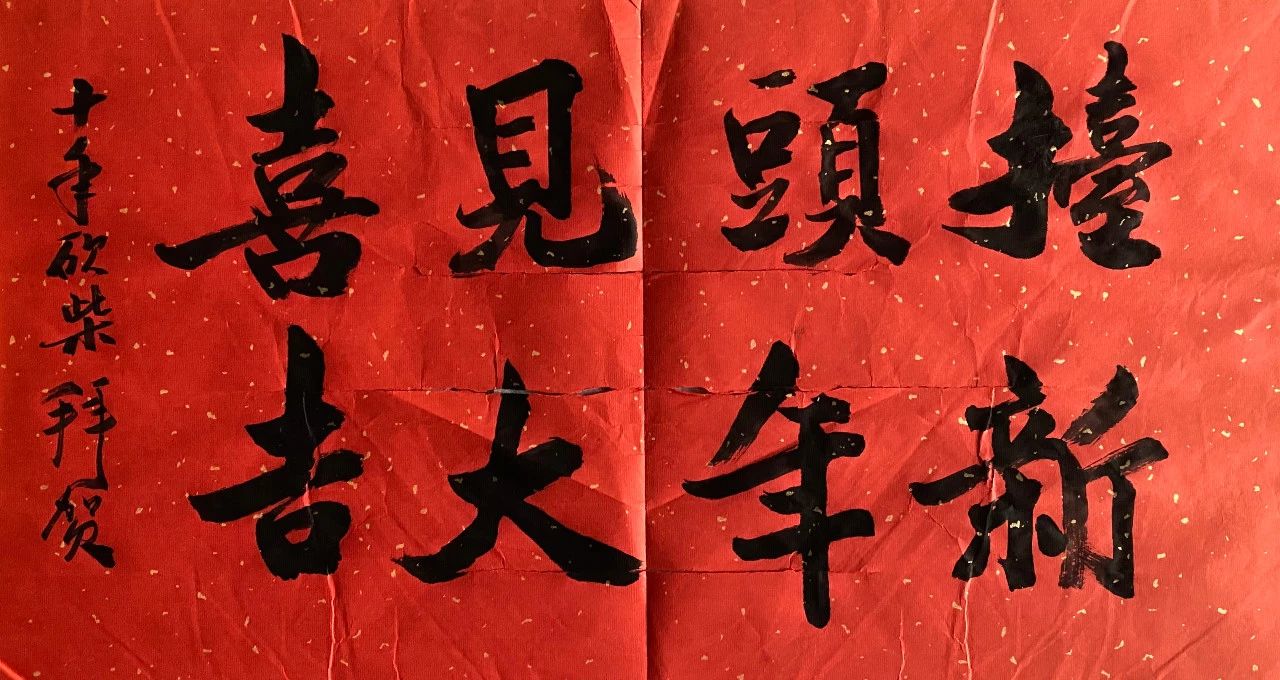 擡頭見喜
新年大吉
十年砍柴拜贺